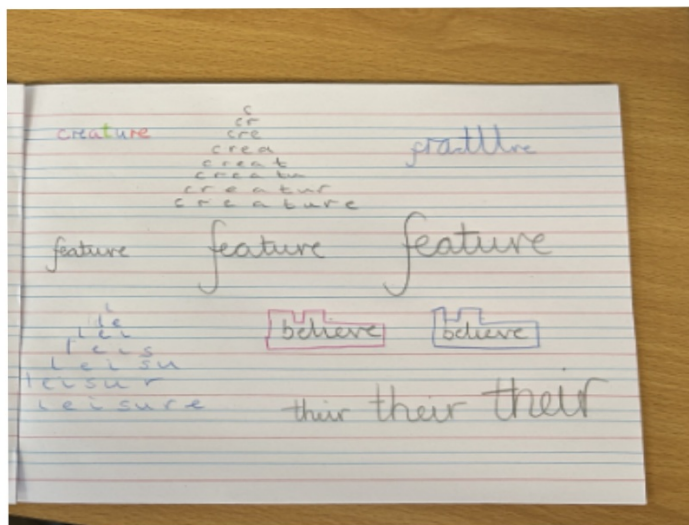 creature
c
cr
cre
crea
creat
creatu
creatur
creature
feature feature feature
l
le
lei
leis
leisu
leisur
leisure
believe believe
their their their